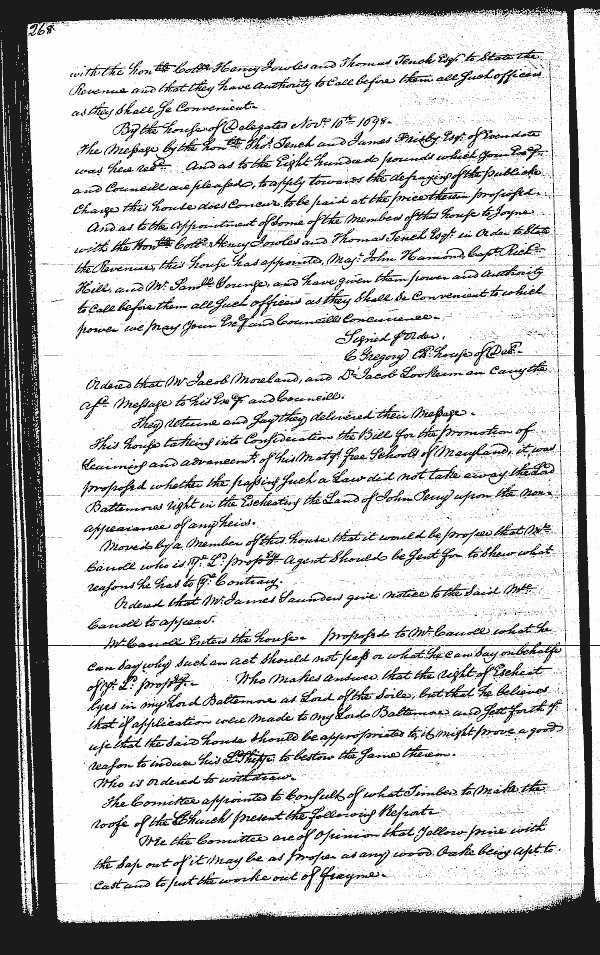 268
with the honble Collo Henry Jowles and Thomas Tench Esqr to State the
Revenue and that they have Authority to Call before them all Such officers
as they Shall Se Convenient.
By the house of Delegates Novr 10th 1698.
The Message by the Honble Thos Tench and James Frisby Esqr of Evendate
was here red. And as to the Eight hundred pounds which your Excy
and Councill are pleased, to apply towards the defraying of the publick
Charge this house does Concur to be paid at the price therein proposed.
And as to the Appointment of Some of the Members of this house to Joyne
with the Honble Collo Henry Jowles and Thomas Tench Esqr in Order to State
the Revenue, this house has appointed, Majr John Hamond, Capt Richd
Hill, and Mr Samll Younge, and have given them power and Authority
to Call before them all Such officers as they Shall Se Convenient to which
power we pray your Excy and Councills Concurrence.
Signed p Order,
C Gregory Cl. house of Del.
Ordered that Mr Jacob Moreland, and Dr Jacob Lookerman carry the
afd. Message to his Excy and Councill.
They returne and Say they delivered their Message.
This house taking into Consideration the Bill for the promotion of
Learning and advancemt of his Matys free Schools of Maryland, it was
proposed whether the passing Such a Law did not take away the Lad
Baltemores right in the Escheating the Land of John Pery upon the non-
appearance of any heirs.
Moved by a Member of this house that it would be proper that Mr
Carroll who is ye Ld. propry Agent Should be Sent for to Shew what
reasons he has to ye Contrary.
Ordered that Mr James Saunders give notice to the Said Mr
Carroll to appear.
Mr Carroll Enters the house. proposed to Mr Carroll what he
can Say why Such an Act Should not pass or what he can Say on behalfe
of ye Ld. propry. Who makes answer that the right of Escheat
lyes in my Lord Baltemore as Lord of the Soile, but that he believes
that if application were made to my Lord Baltemore and Sett forth if
use that the Said house Should be appropriated to it might prove a good
reason to induce his Lspps to bestow the Same therein.
Who is ordered to withdraw.
The Comittee appointed to Consult of what Timber to Make the
roofe of the Church present the following Report.
Wee the Comittee are of Opinion that Yallow pine with
the Sap out of it may be as proper as any wood Oake being apt to
cast and to put the worke out of frayme.